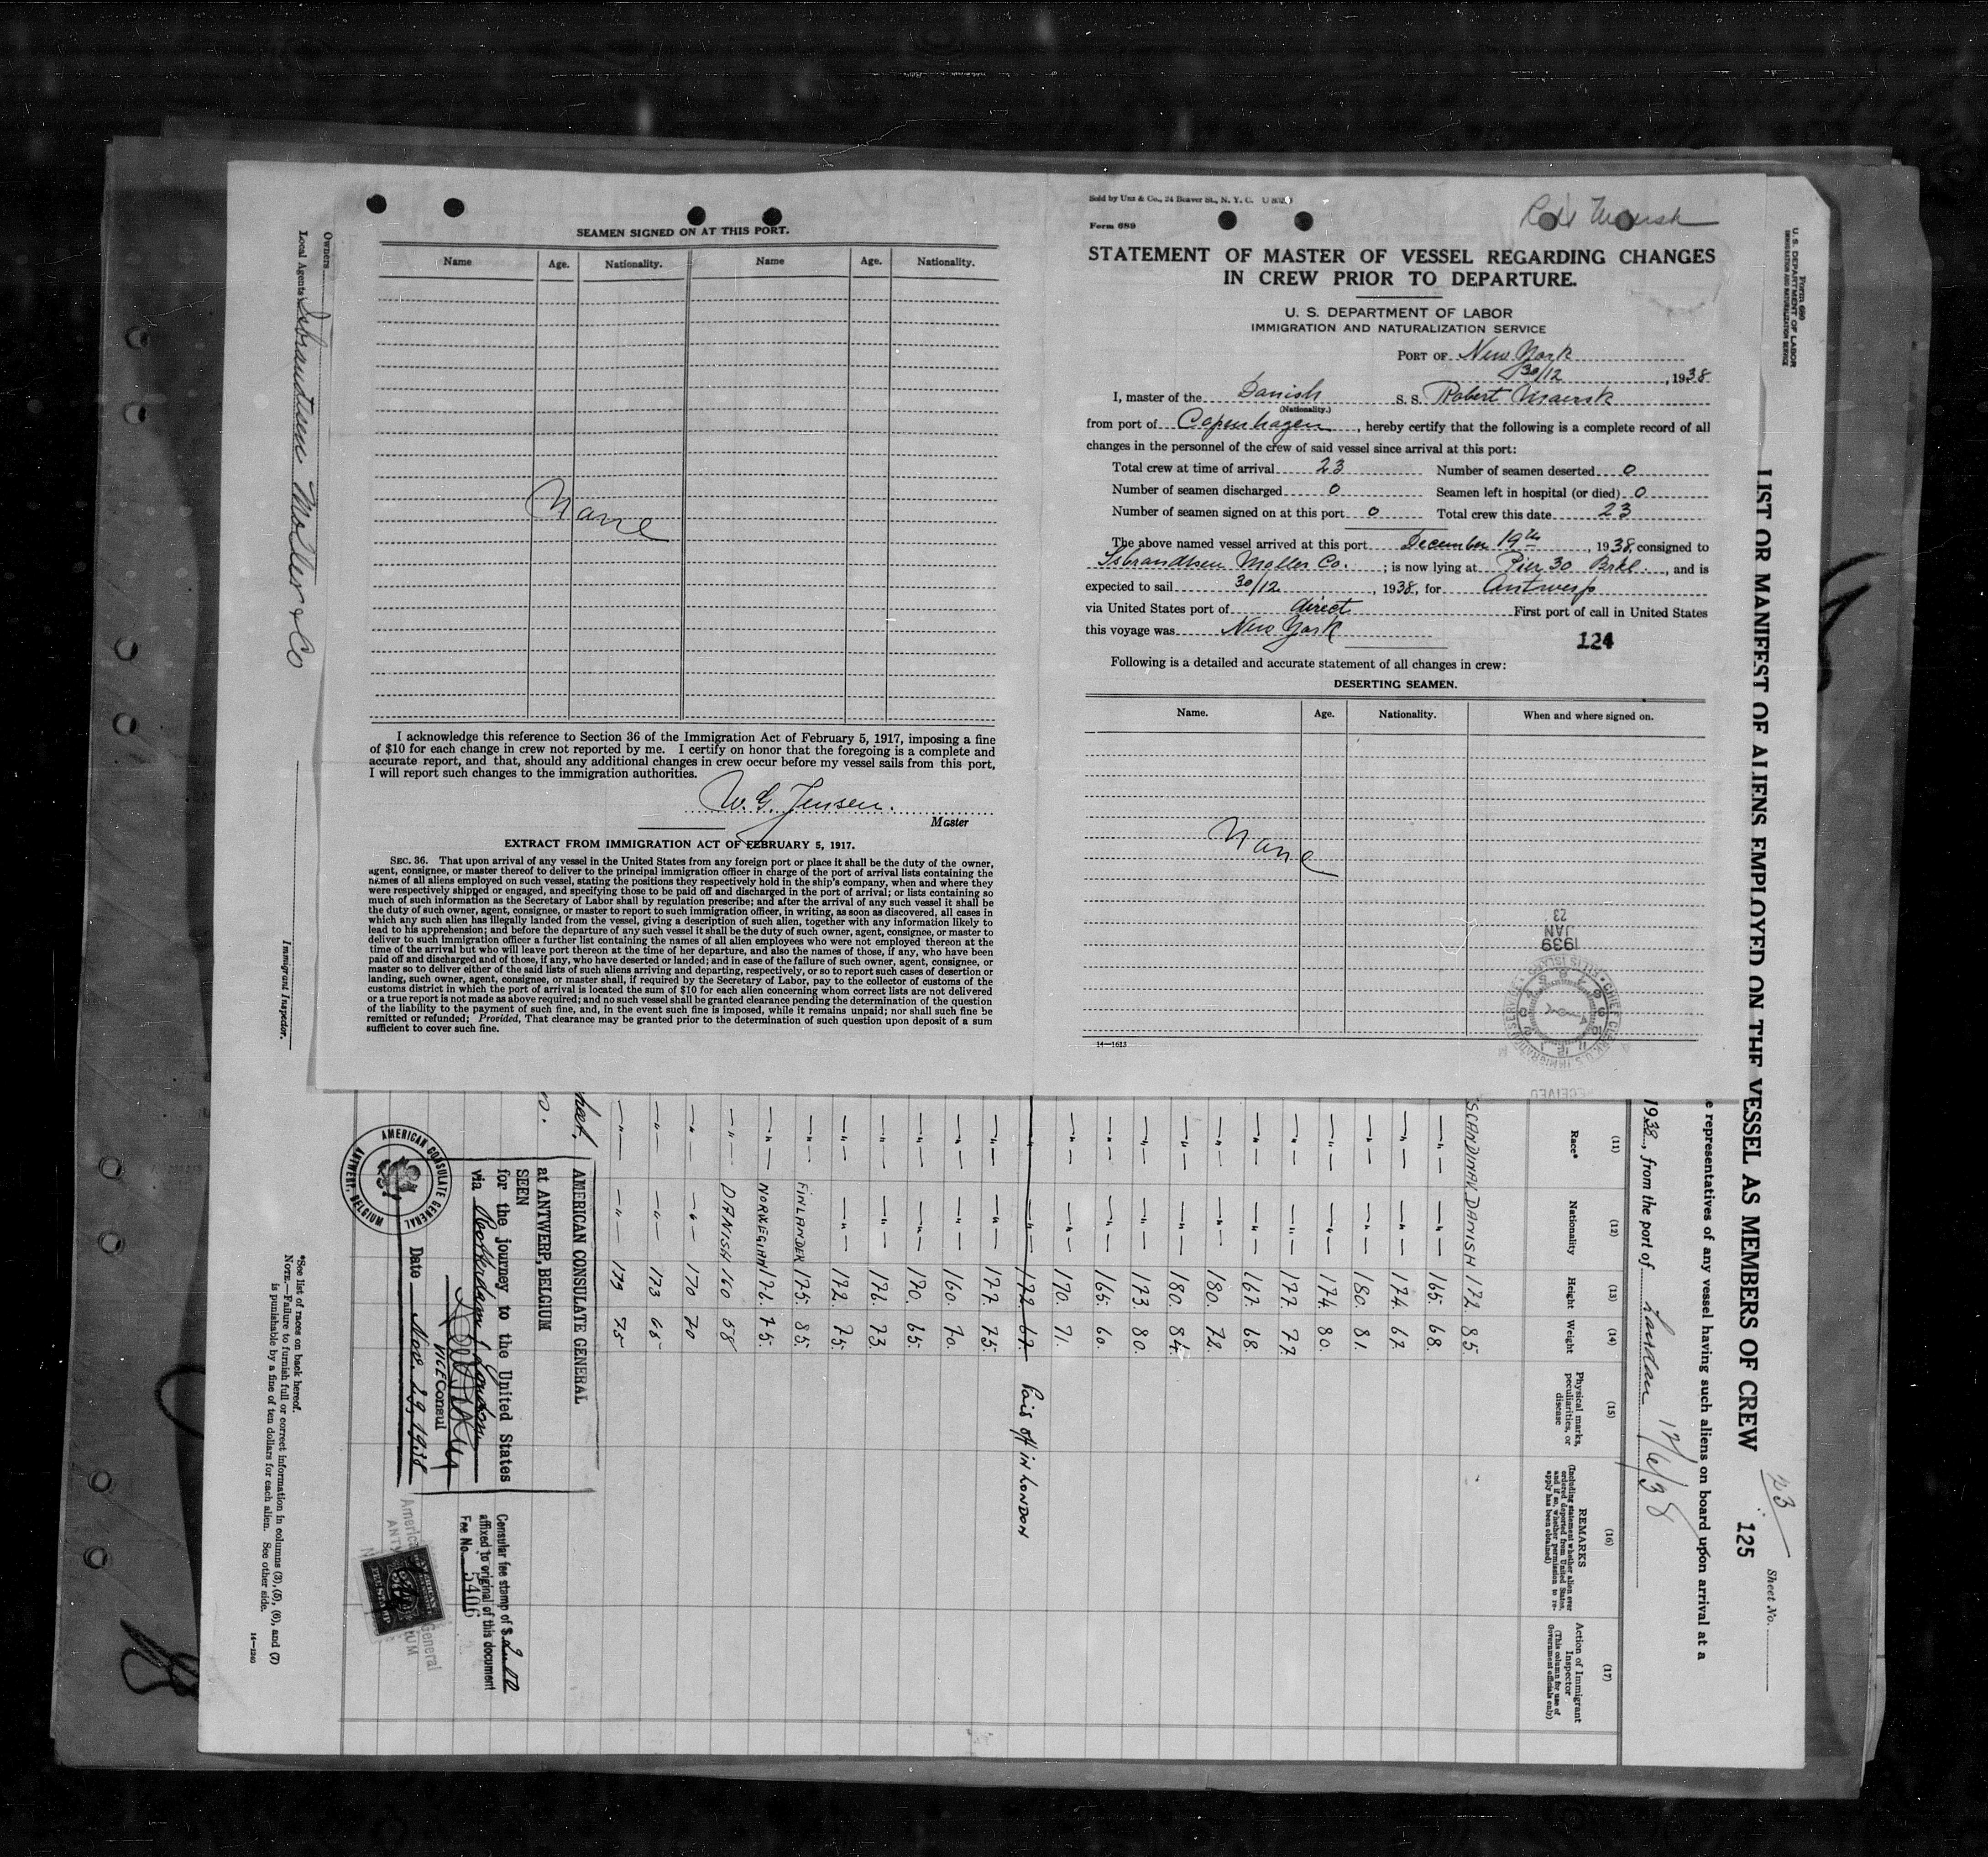 SEAMEN SIGNED ON AT THIS PORT.
Name Age. Nationality. Name Age. Nationality.
None
I acknowledge this reference to Section 36 of the Immigration Act of February 5, 1917, imposing a fine
of $10 for each change in crew not reported by me. I certify on honor that the foregoing is a complete and
accurate report, and that, should any additional changes in crew occur before my vessel sails from this port,
I will report such changes to the immigration authorities.
W. G. Jensen.
Master
EXTRACT FROM IMMIGRATION ACT OF FEBRUARY 5, 1917.
SEC. 36. That upon arrival of any vessel in the United States from any foreign port or place it shall be the duty of the owner,
agent, consignee, or master thereof to deliver to the principal immigration officer in charge of the port of arrival lists containing the
names of all aliens employed on such vessel, stating the positions they respectively hold in the ship's company, when and where they
were respectively shipped or engaged, and specifying those to be paid off and discharged in the port of arrival; or lists containing so
much of such information as the Secretary of Labor shall by regulation prescribe; and after the arrival of any such vessel it shall be
the duty of such owner, agent, consignee, or master to report to such immigration officer, in writing, as soon as discovered, all cases in
which any such alien has illegally landed from the vessel, giving a description of such alien, together with any information likely to
lead to his apprehension; and before the departure of any such vessel it shall be the duty of such owner, agent, consignee, or master to
deliver to such immigration officer a further list containing the names of all alien employees who were not employed thereon at the
time of the arrival but who will leave port thereon at the time of her departure, and also the names of those, if any, who have been
paid off and discharged and of those, if any, who have deserted or landed; and in case of the failure of such owner, agent, consignee, or
master so to deliver either of the said lists of such aliens arriving and departing, respectively, or so to report such cases of desertion or
landing, such owner, agent, consignee, or master shall, if required by the Secretary of Labor, pay to the collector of customs of the
customs district in which the port of arrival is located the sum of $10 for each alien concerning whom correct lists are not delivered
or a true report is not made as above required; and no such vessel shall be granted clearance pending the determination of the question
of the liability to the payment of such fine, and, in the event such fine is imposed, while it remains unpaid; nor shall such fine be
remitted or refunded; Provided, That clearance may be granted prior to the determination of such question upon deposit of a sum
sufficient to cover such fine.
Sold by Unz & Co., 24 Beaver St., N. Y. C.
Maersk
Form 689
STATEMENT OF MASTER OF VESSEL REGARDING CHANGES
IN CREW PRIOR TO DEPARTURE.
U. S. DEPARTMENT OF LABOR
IMMIGRATION AND NATURALIZATION SERVICE
PORT OF New York
30/12, 1938
I, master of the Danish S. S. Robert Maersk
(Nationality.)
from port of Copenhagen, hereby certify that the following is a complete record of all
changes in the personnel of the crew of said vessel since arrival at this port:
Total crew at time of arrival 23 Number of seamen deserted 0
Number of seamen discharged 0 Seamen left in hospital (or died) 0
Number of seamen signed on at this port 0 Total crew this date 23
The above named vessel arrived at this port December 19th, 1938, consigned to
Isbrandtsen Moller Co.; is now lying at Pier 30 Brkl., and is
expected to sail 30/12, 1938, for Antwerp
via United States port of direct First port of call in United States
this voyage was New York
124
Following is a detailed and accurate statement of all changes in crew:
DESERTING SEAMEN.
Name. Age. Nationality. When and where signed on.
None
1939 JAN 23
CHIEF CLERK U.S. IMMIGRATION SERVICE ELLIS ISLAND
RECEIVED
14—1613
Form 680
U. S. DEPARTMENT OF LABOR
IMMIGRATION AND NATURALIZATION SERVICE
LIST OR MANIFEST OF ALIENS EMPLOYED ON THE VESSEL AS MEMBERS OF CREW
23
125
Sheet No.
e representatives of any vessel having such aliens on board upon arrival at a
1938, from the port of London 12/6/38
(11) (12) (13) (14) (15) (16) (17)
Race* Nationality Height Weight Physical marks, peculiarities, or disease
REMARKS
(Including statement whether alien ever ordered deported from United States, and if so, whether permission to reapply has been obtained)
Action of Immigrant Inspector
(This column for use of Government officials only)
SCANDINAV. DANISH 172. 85
—"— —"— 165. 68.
—"— —"— 174. 67.
—"— —"— 180. 81.
—"— —"— 174. 80.
—"— —"— 177. 77.
—"— —"— 167. 68.
—"— —"— 180. 72.
—"— —"— 180. 84.
—"— —"— 173. 80.
—"— —"— 165. 60.
—"— —"— 170. 71.
—"— —"— 172. 67. Pais off in LONDON
—"— —"— 177. 75.
—"— —"— 160. 70.
—"— —"— 170. 65.
—"— —"— 176. 73.
—"— —"— 172. 75.
—"— FINLANDER 175. 85.
—"— NORWEGIAN 176. 75.
—"— DANISH 160 58
—"— —"— 170 70
—"— —"— 173 65
—"— —"— 179 75
heet.
AMERICAN CONSULATE GENERAL
at ANTWERP, BELGIUM
SEEN
for the journey to the United States
via Rotterdam, London
VICE Consul
Date Nov. 29, 1938
AMERICAN CONSULATE GENERAL
ANTWERP, BELGIUM
Censular fee stamp of $
affixed to original of this document
Fee No. 5406
FEE STAMP
*See list of races on back hereof.
NOTE.—Failure to furnish full or correct information in columns (3), (5), (6), and (7)
is punishable by a fine of ten dollars for each alien. See other side.
14—1240
Owners
Local Agents Isbrandtsen Moller & Co
Immigrant Inspector.